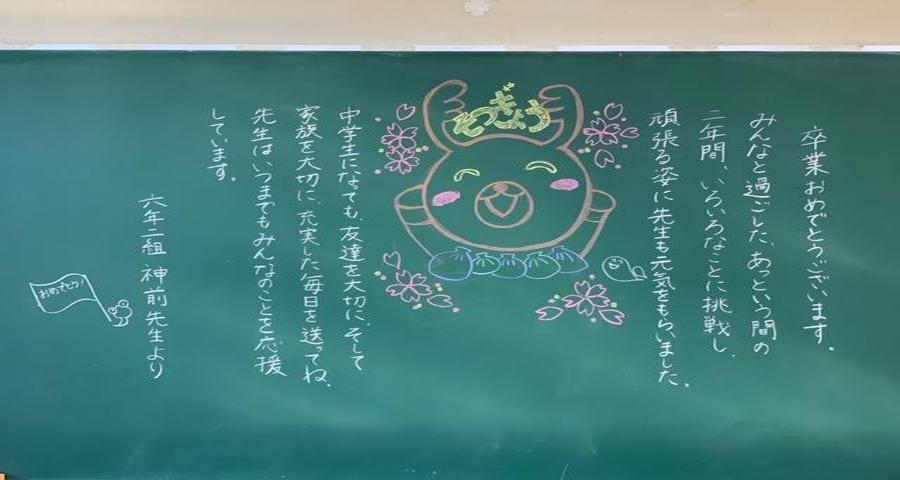 卒業おめでとうございます。
みんなと過ごした、あっという間の
二年間、いろいろなことに挑戦し、
頑張る姿に先生も元気をもらいました。
そつぎょう
中学生になっても、友達を大切に、そして
家族を大切に、充実した毎日を送ってね。
先生はいつまでもみんなのことを応援
しています。
六年二組 神前先生より
おめでとう!